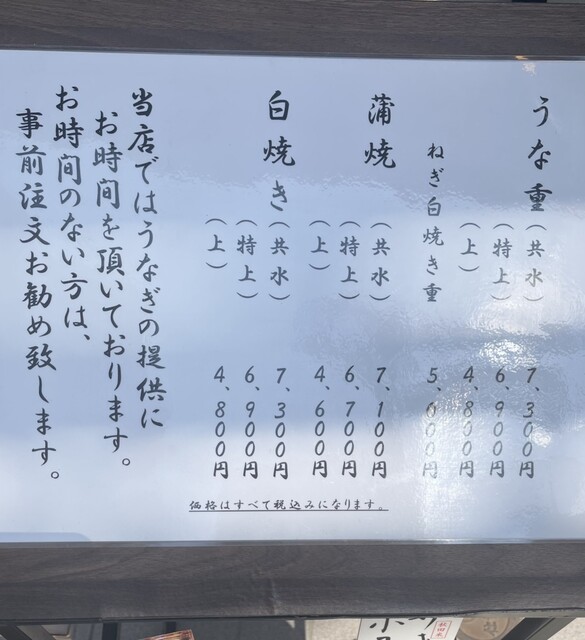 うな重（共水） 7、300円
（特上） 6、900円
（上） 4、800円
ねぎ白焼き重 5、000円
蒲焼（共水） 7、100円
（特上） 6、700円
（上） 4、600円
白焼き（共水） 7、300円
（特上） 6、900円
（上） 4、800円
当店ではうなぎの提供に
お時間を頂いております。
お時間のない方は、
事前注文お勧め致します。
価格はすべて税込みになります。